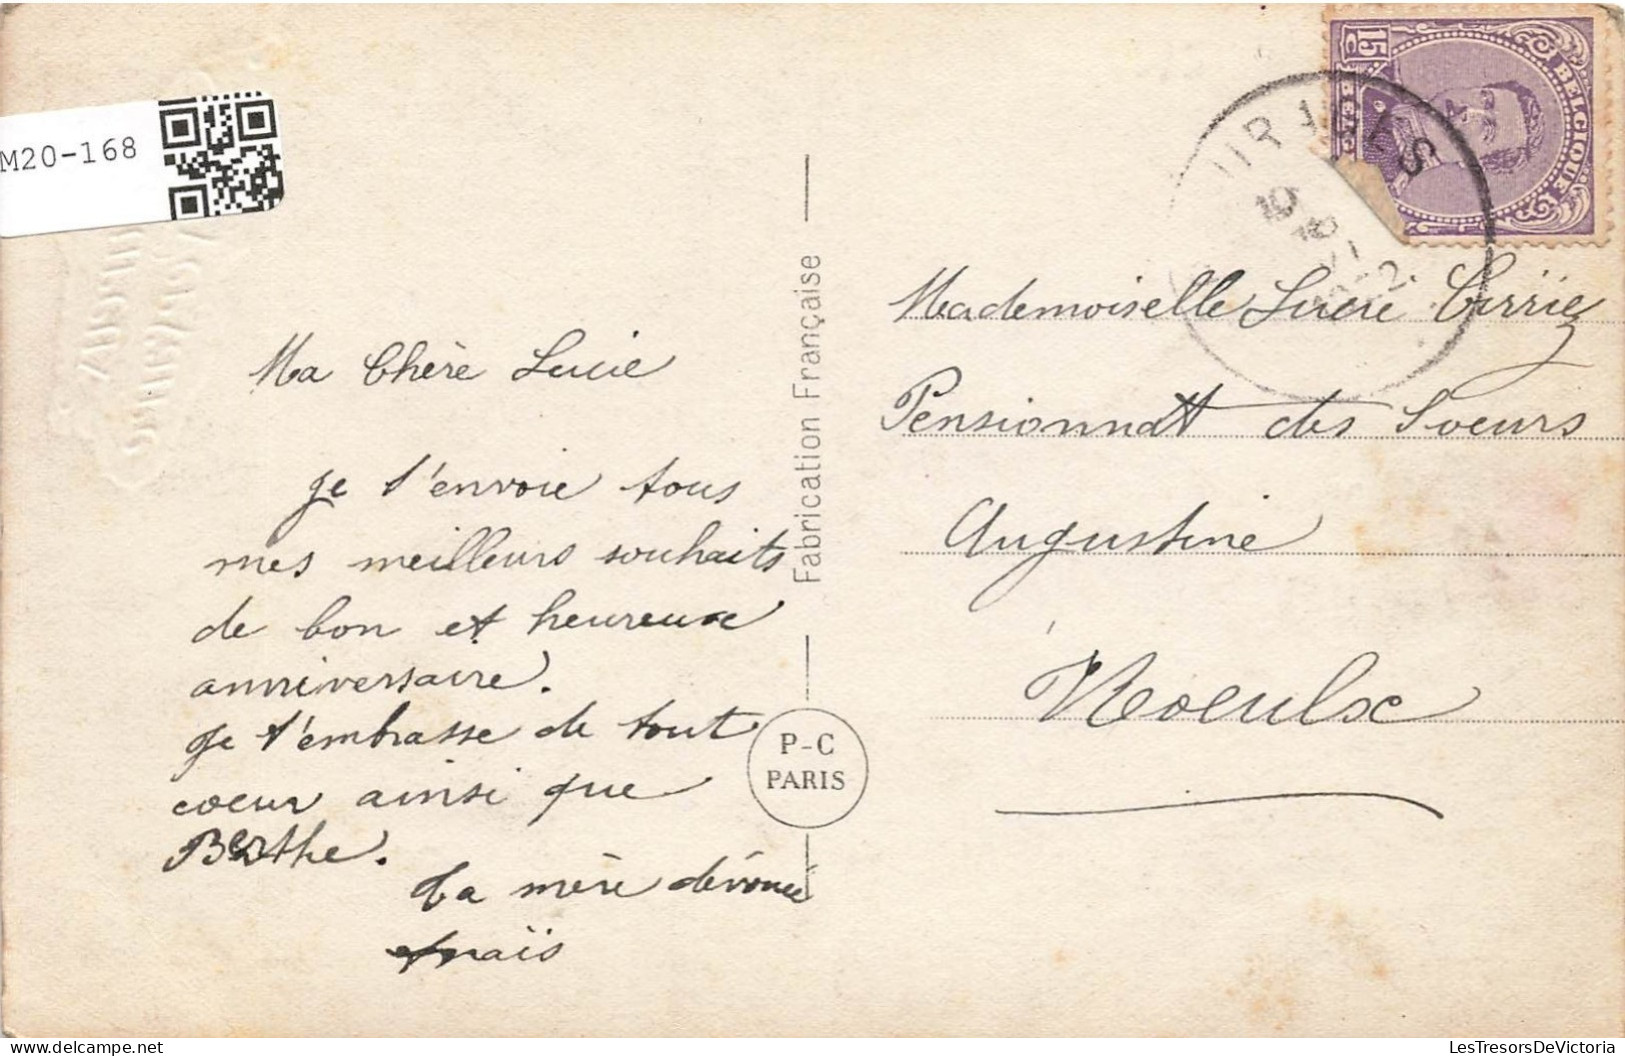 M20-168
15
C
BELGIQUE
Ma Chère Lucie
je t'envoie tous
mes meilleurs souhaits
de bon et heureux
anniversaire.
Je t'embrasse de tout
coeur ainsi que
Berthe.
Ta mère dévouée
Anaïs
Fabrication Française
P-C
PARIS
Mademoiselle Lucie
Pensionnatt des Soeurs
Augustine
Moeulx
LesTresorsDeVictoria